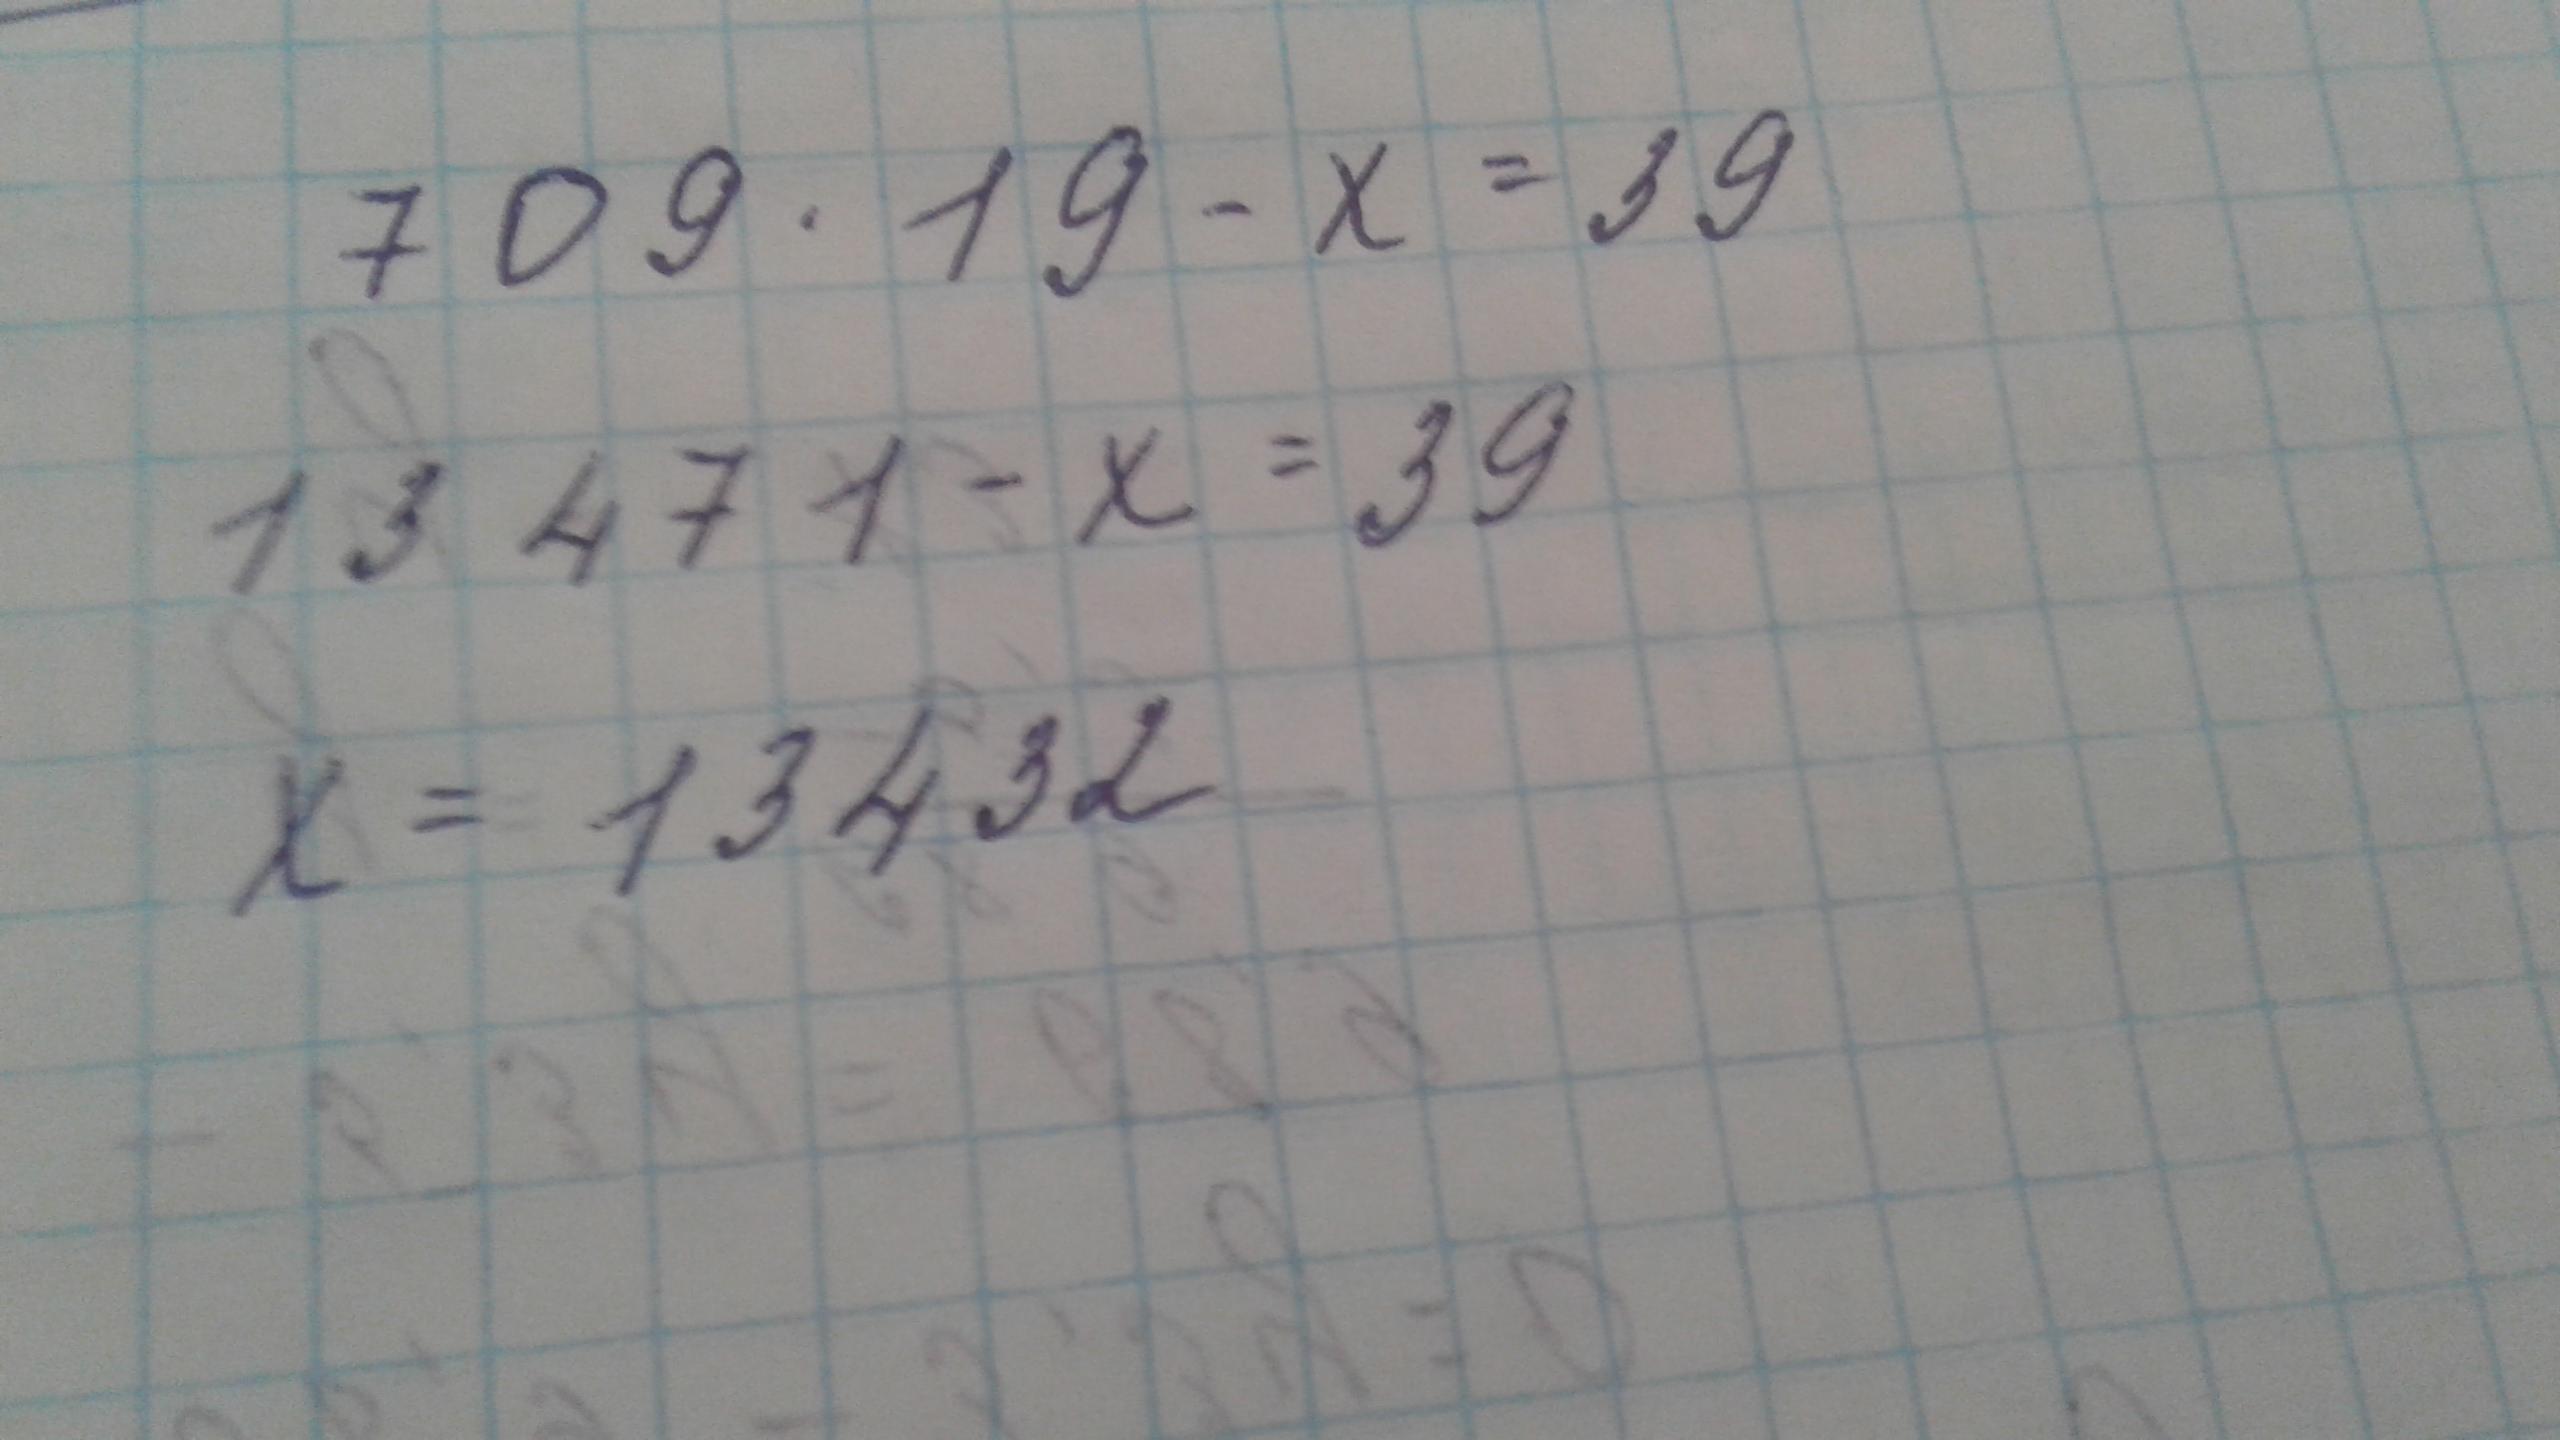 709 · 19 - x = 39
13471 - x = 39
x = 13432